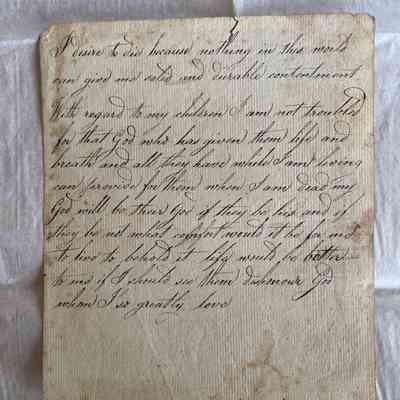 7
I desire to die because nothing in this world
can give me solid and durable contentment
With regard to my children I am not troubled
for that God who has given them life and
breath and all they have while I am living
can provide for them when I am dead my
God will be their God if they be his and if
they be not what comfort would it be for me
to live to behold it life would be bitter
to me if I should see them dishonour God
whom I so greatly love